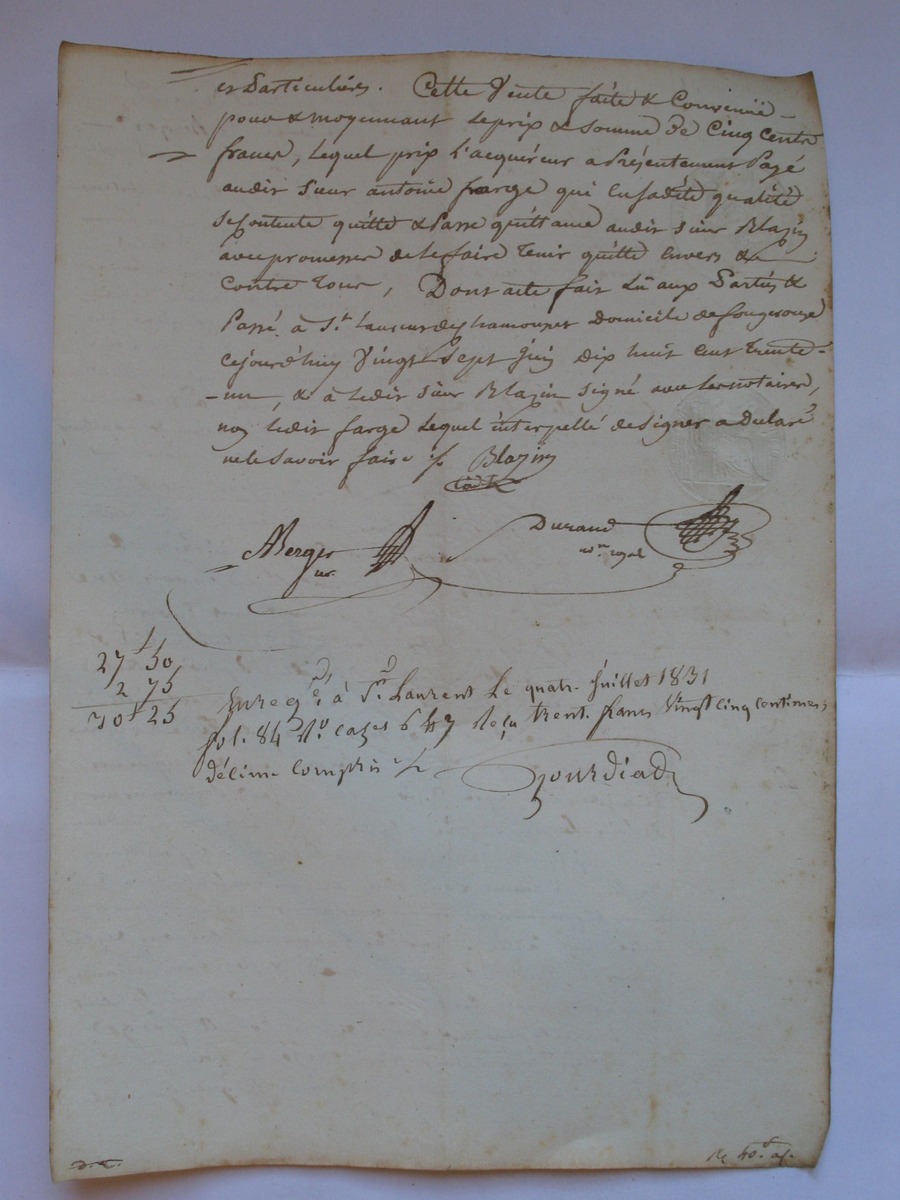 et Particulières. Cette Vente faite & Convenüe
pour & moyennant le prix & somme de Cinq Cents
francs, lequel prix l'acquéreur a Présentement Payé
audit Sieur antoine farge qui en sadite qualité
se Contente quitte & Passe quittance audit Sieur Blazin
avec promesse de le faire tenir quitte Envers &
Contre tous, Dont acte fait Lû aux Parties &
Passé à St. Laurent de Chamousset Domicile de fougerouze
cejourd'huy Vingt Sept Juin dix huit Cent trente-
-un, & à ledit Sieur Blazin signé avec les notaires,
non ledit farge lequel interpellé de signer a Déclaré
ne le Savoir faire ./. Blazin
ABerger
nre.
Durand
nre royal
27 f 50
2 75
30 f 25
Enregé. à St. Laurent le quatre Juillet 1831
fol. 84 Ro. cazes 6 & 7 Reçu trente francs Vingt Cinq Centimes,
décime Compris ./.